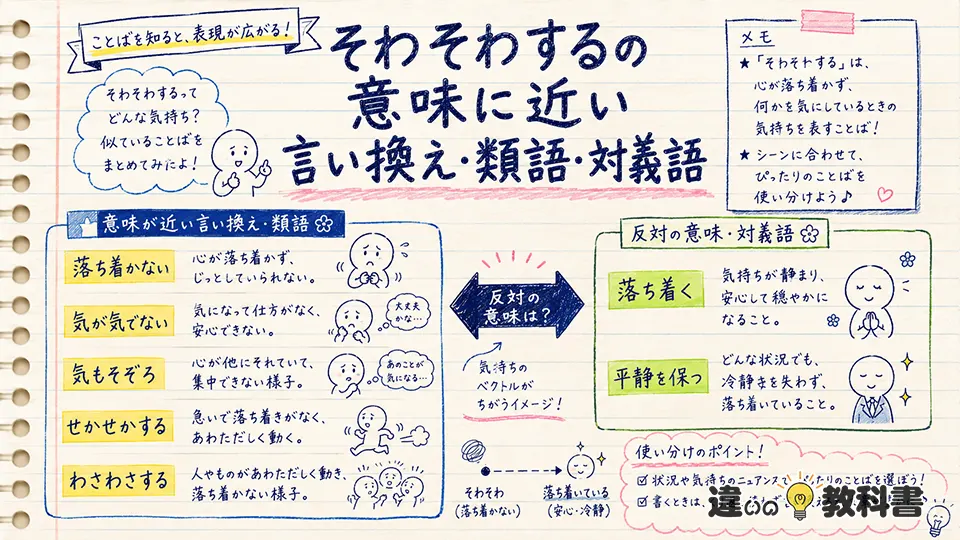 ことばを知ると、表現が広がる!
そわそわするの
意味に近い
言い換え・類語・対義語
そわそわするって
どんな気持ち?
似ていることばを
まとめてみたよ!
メモ
★「そわそわする」は、
心が落ち着かず、
何かを気にしているときの
気持ちを表すことば!
★シーンに合わせて、
ぴったりのことばを
使い分けよう♪
意味が近い言い換え・類語
落ち着かない
心が落ち着かず、
じっとしていられない。
気が気でない
気になって仕方がなく、
安心できない。
大丈夫
かな…
気もそぞろ
心が他にそれていて、
集中できない様子。
あのことが
気になる…
せかせかする
急いで落ち着きがなく、
あわただしく動く。
わさわさする
人やものがあわただしく動き、
落ち着かない様子。
反対の
意味は?
気持ちの
ベクトルが
ちがうイメージ!
そわそわ
(落ち着かない)
落ち着いている
(安心・冷静)
反対の意味・対義語
落ち着く
気持ちが静まり、
安心して穏やかに
なること。
平静を保つ
どんな状況でも、
冷静さを失わず、
落ち着いていること。
使い分けのポイント!
☑状況や気持ちのニュアンスで、ぴったりのことばを選ぼう!
☑書くときは、
違いの教科書